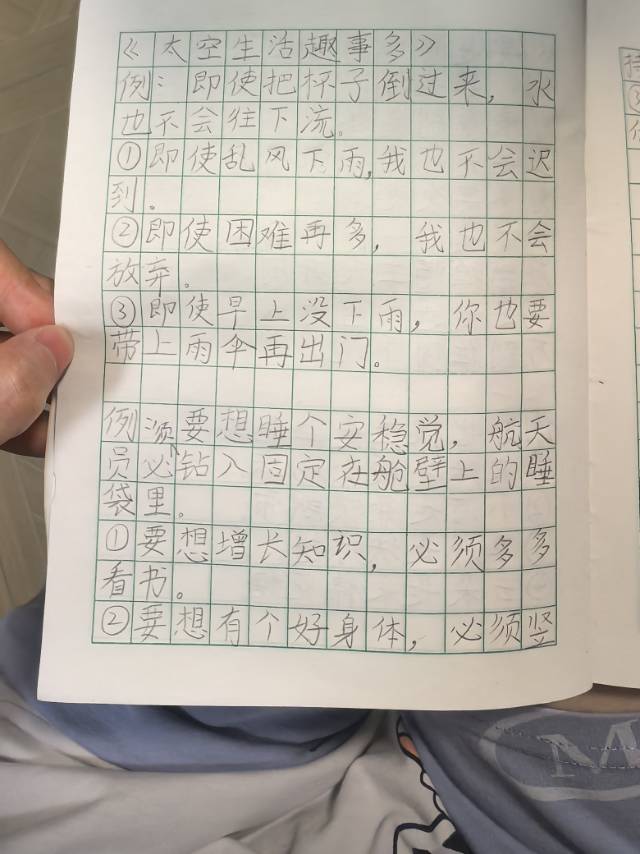 《太空生活趣事多》
例：即使把杯子倒过来，水
也不会往下流。
①即使乱风下雨，我也不会迟
到。
②即使困难再多，我也不会
放弃。
③即使早上没下雨，你也要
带上雨伞再出门。
例 要想睡个安稳觉，航天
员必须钻入固定在舱壁上的睡
袋里。
①要想增长知识，必须多多
看书。
②要想有个好身体，必须竖
M